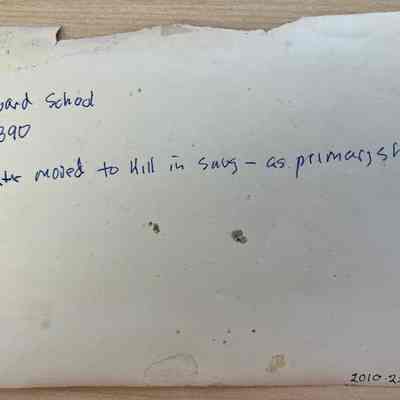 oard School
890
moved to Hill in - as primary
2010-2